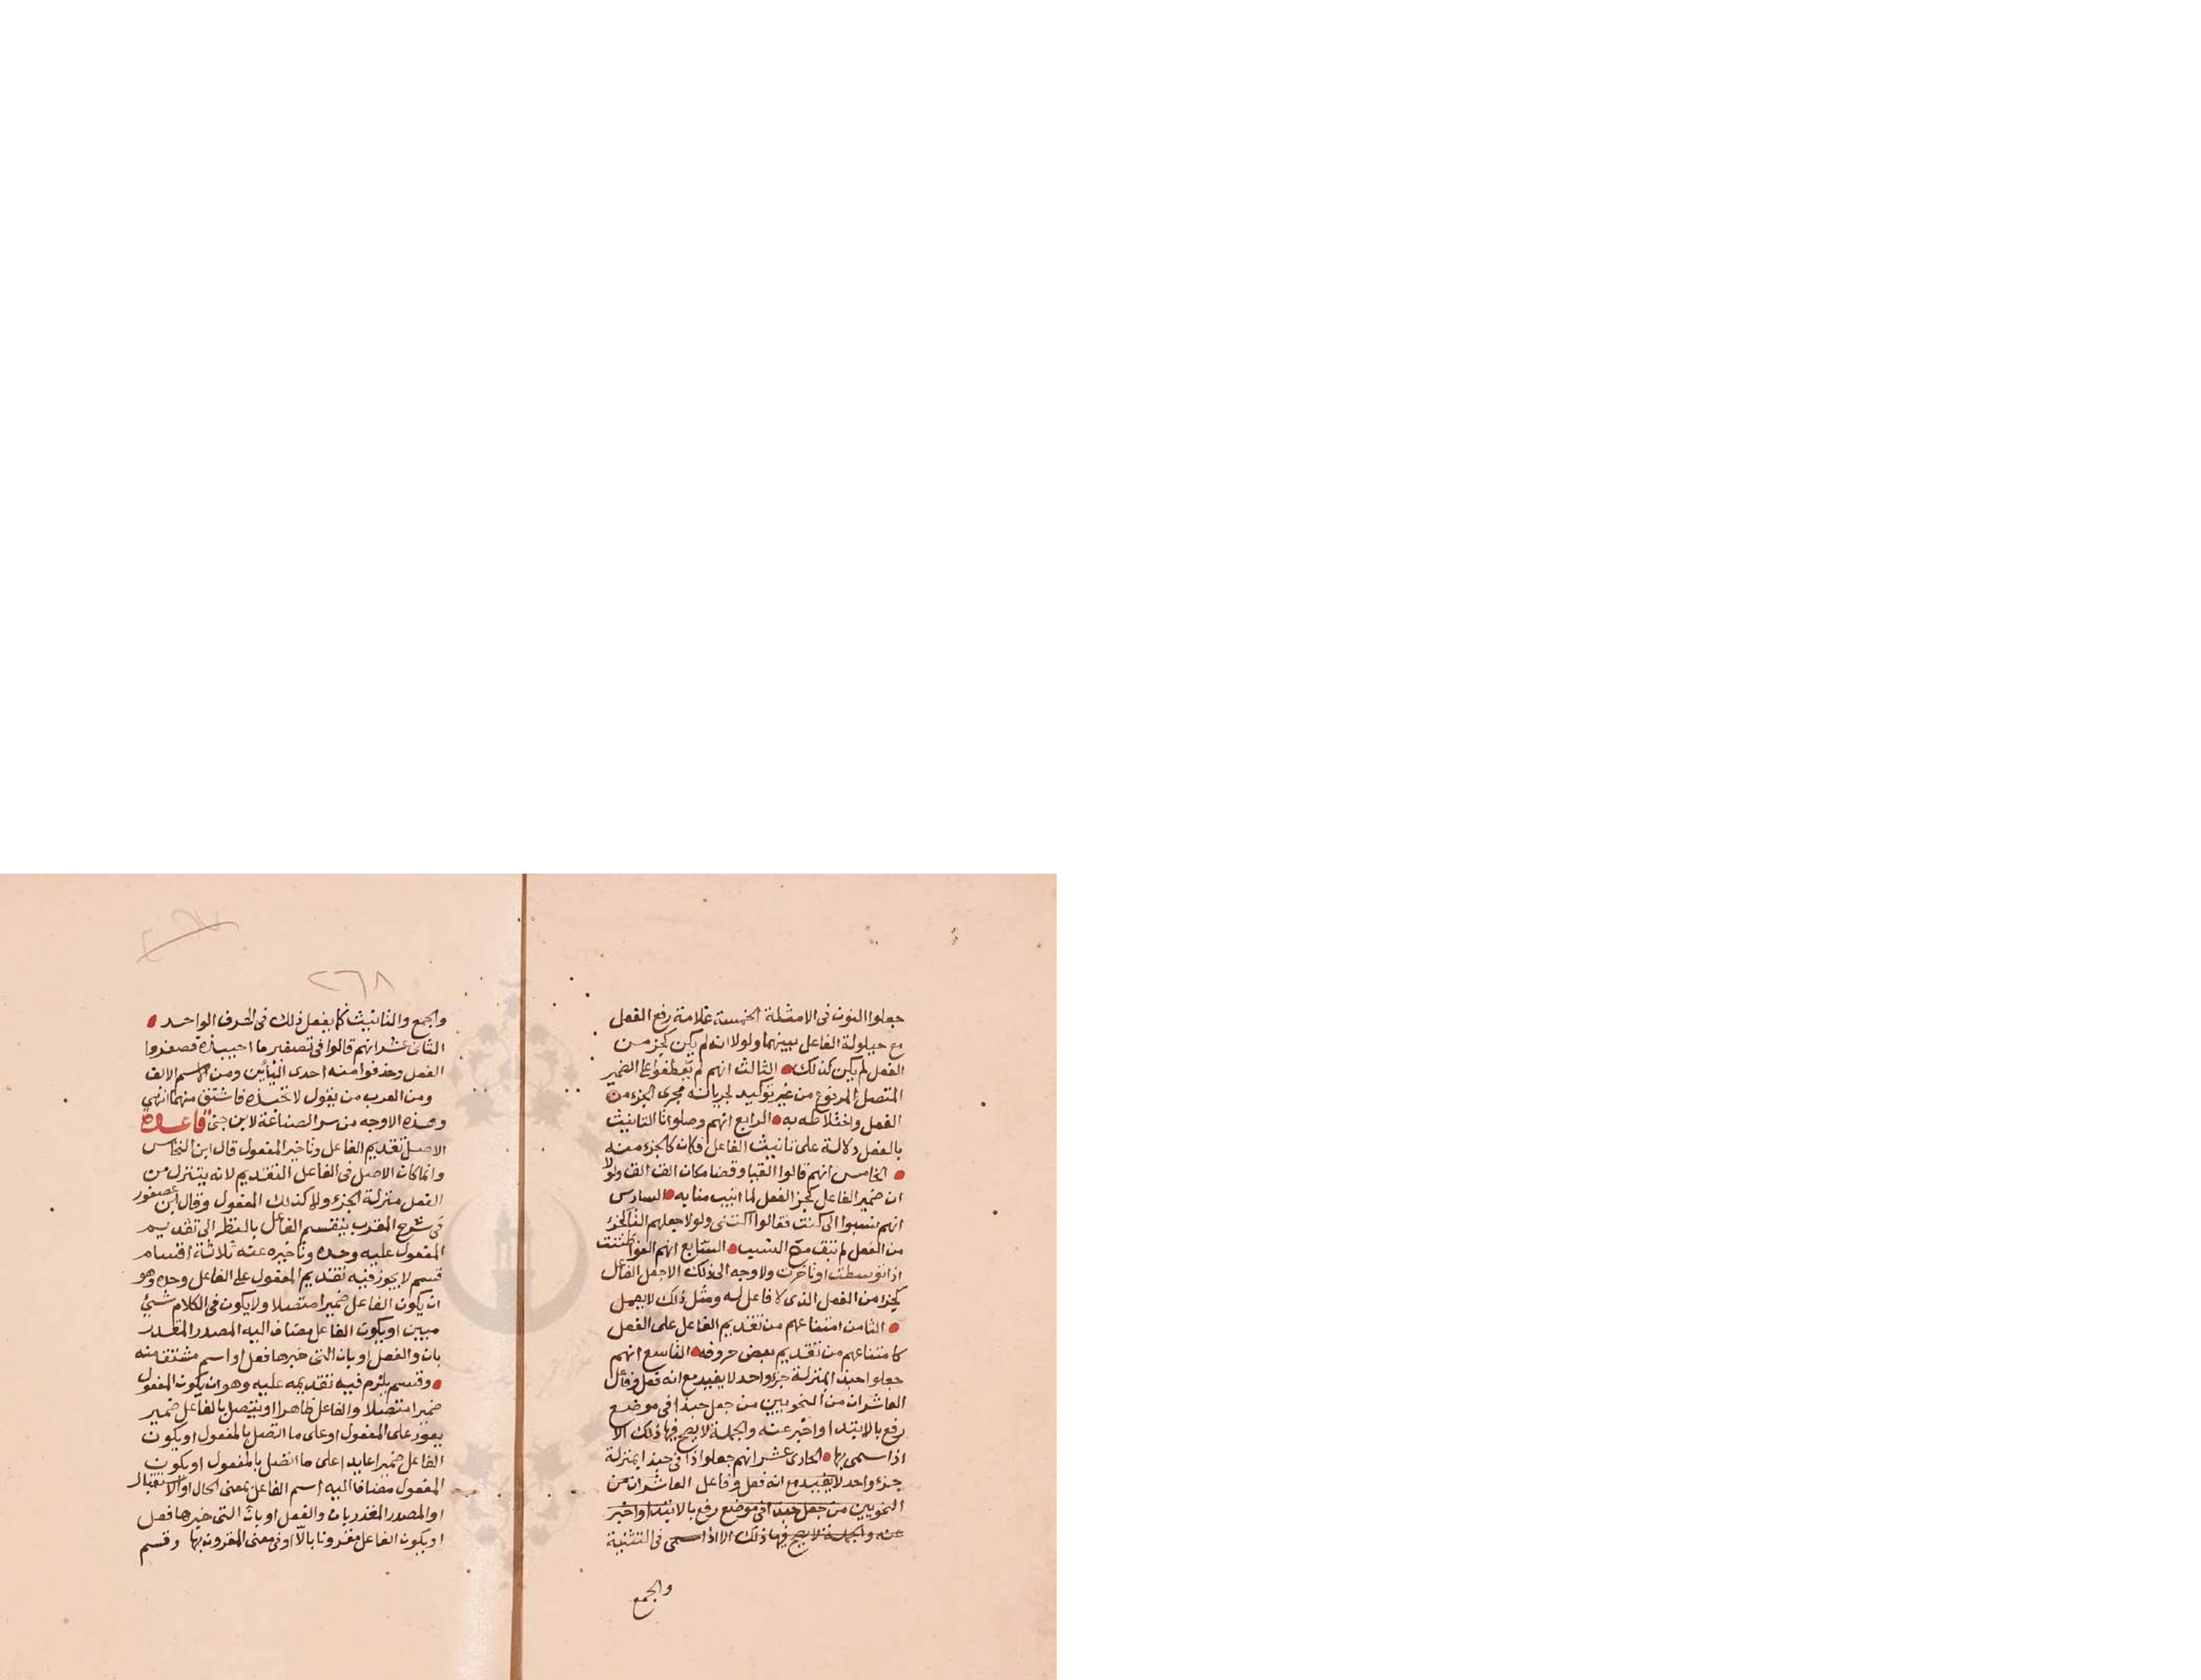 جعلوا النون في الامثلة الخمسة علامة رفع الفعل
مع حيلولة الفاعل بينهما ولولا انه لم يكن كجزء من
الفعل لم يكن كذلك الثالث انهم لم يعطفوا على الضمير
المتصل المرفوع من غير توكيد لجريانه مجرى الجزء من
الفعل واختلاطه به الرابع انهم وصلوا تا التانيث
بالفعل دلالة على تانيث الفاعل فكان كالجزء منه
الخامس انهم قالوا القيا وقفا مكان الق الق ولولا
ان ضمير الفاعل كجزء الفعل لما انيب منابه السادس
انهم نسبوا الى كنت فقالوا كنتى ولولا جعلهم التا كجزء
من الفعل لم تبق مع النسب السابع انهم الغوا ظننت
اذا توسطت او تاخرت ولا وجه الى ذلك الا جعل الفاعل
كجزء من الفعل الذى لا فاعل له ومثل ذلك لا يعمل
الثامن امتناعهم من تقديم الفاعل على الفعل
كامتناعهم من تقديم بعض حروفه التاسع انهم
جعلوا حبذا بمنزلة جزء واحد لا يفيد مع انه فعل وفاعل
العاشر ان من النحويين من جعل حبذا في موضع
رفع بالابتدا واخبر عنه والجملة لا يصح فيها ذلك الا
اذا سمى بها الحادى عشر انهم جعلوا ذا في حبذا بمنزلة
جزء واحد لا يفيد مع انه فعل وفاعل العاشر ان من
النحويين من جعل حبذا في موضع رفع بالابتدا واخبر
عنه والجملة لا يصح فيها ذلك الا اذا سمى في التثنية
والجمع
٢٦٨
والجمع والتانيث كما يفعل ذلك في الحرف الواحد
الثانى عشر انهم قالوا في تصغير ما احبب ذه فصغروا
الفعل وحذفوا منه احدى اليائين ومن الاسم الالف
ومن العرب من يقول لا تحبذه فاشتق منهما انتهى
وهذه الاوجه من سر الصناعة لابن جنى قاعدة
الاصل تقديم الفاعل وتاخير المفعول قال ابن النحاس
وانما كان الاصل في الفاعل التقديم لانه يتنزل من
الفعل منزلة الجزء ولا كذلك المفعول وقال ابن عصفور
في شرح المقرب ينقسم الفاعل بالنظر الى تقديم
المفعول عليه وحده وتاخيره عنه ثلاثة اقسام
قسم لا يجوز فيه تقديم المفعول على الفاعل وحده وهو
ان يكون الفاعل ضميرا متصلا ولا يكون في الكلام شيئ
مبين او يكون الفاعل مضاف اليه المصدر المقدر
بان والفعل او بان التى خبرها فعل او اسم مشتق منه
وقسم يلزم فيه تقديمه عليه وهو ان يكون المفعول
ضميرا متصلا والفاعل ظاهرا او يتصل بالفاعل ضمير
يعود على المفعول او على ما اتصل بالمفعول او يكون
الفاعل ضميرا عايدا على ما اتصل بالمفعول او يكون
المفعول مضافا اليه اسم الفاعل بمعنى الحال او الاستقبال
او المصدر المقدر بان والفعل او بان التى خبرها فعل
او يكون الفاعل مقرونا بالا او في معنى المقرون بها وقسم